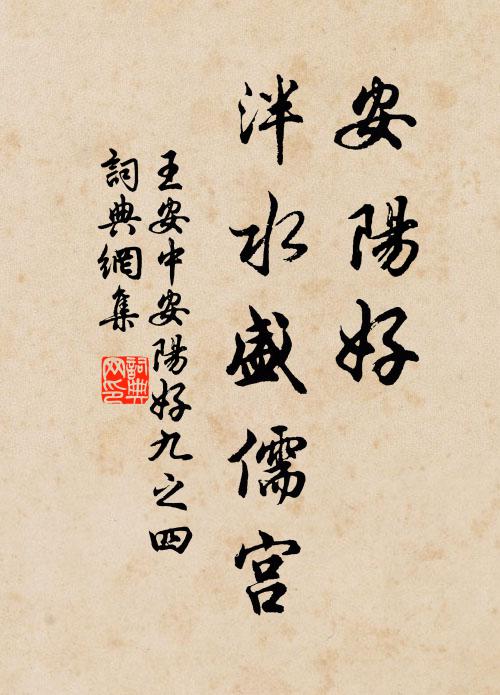 安陽好
泮水盛儒宫
王安中安陽好九之四
詞典網集
詞典
网印